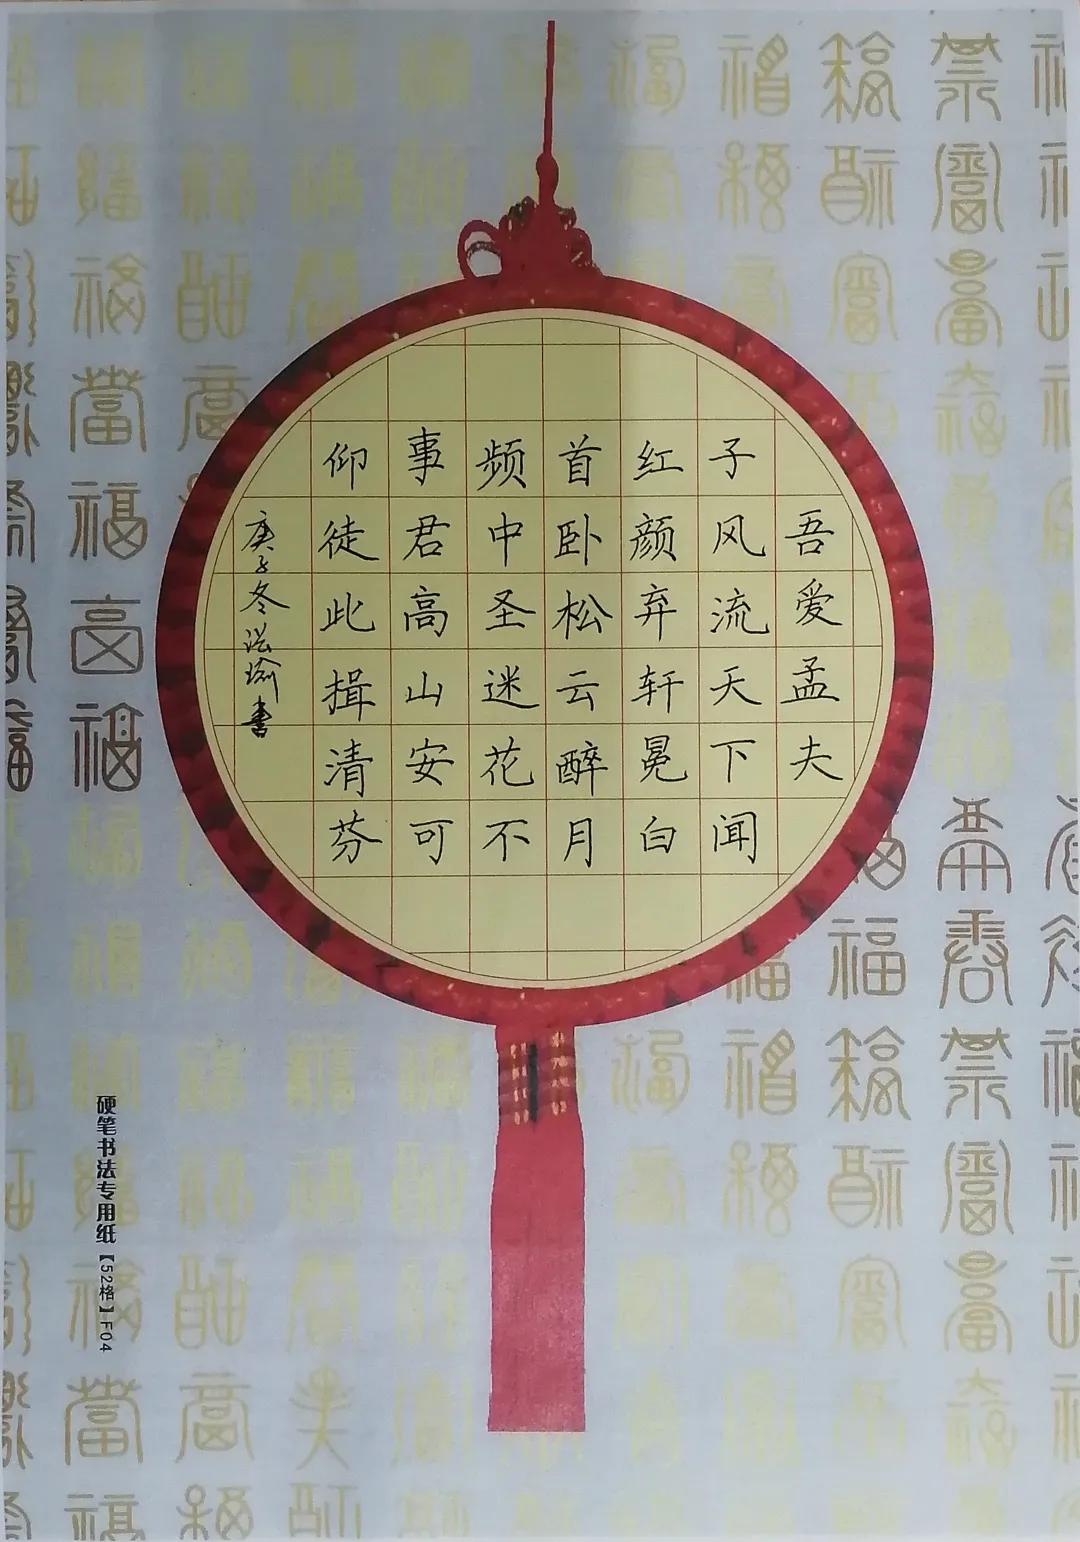 吾爱孟夫
子风流天下闻
红颜弃轩冕白
首卧松云醉月
频中圣迷花不
事君高山安可
仰徒此揖清芬
庚子冬 瑜书
硬笔书法专用纸【52格】F04